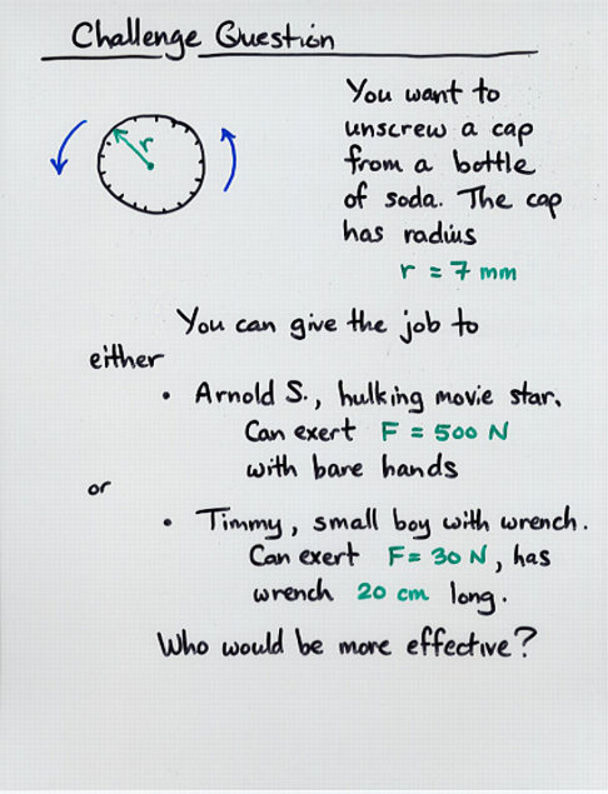 Challenge Question
r
You want to
unscrew a cap
from a bottle
of soda. The cap
has radius
r = 7 mm
You can give the job to
either
• Arnold S., hulking movie star.
Can exert F = 500 N
with bare hands
or
• Timmy, small boy with wrench.
Can exert F = 30 N, has
wrench 20 cm long.
Who would be more effective?